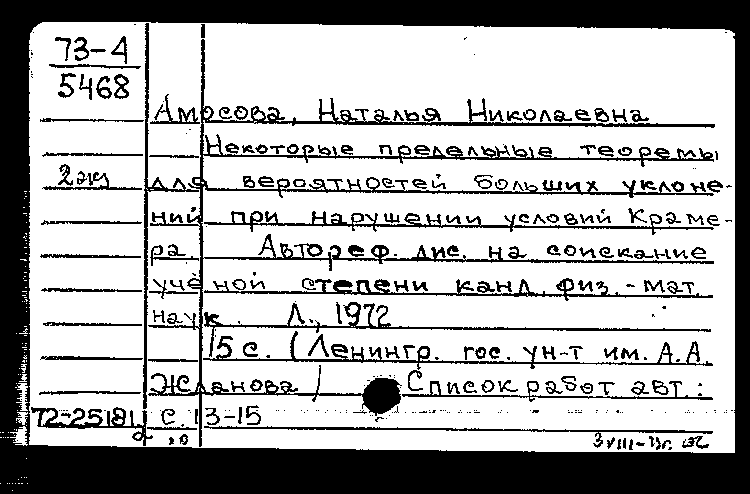 73-4
5468
Амосова, Наталья Николаевна
Некоторые предельные теоремы
2 экз
для вероятностей больших уклоне-
ний при нарушении условий Краме-
ра. Автореф. дис. на соискание
учёной степени канд. физ.-мат.
наук. Л., 1972
15 с. (Ленингр. гос. ун-т им. А.А.
Жданова) Список работ авт.:
72-25181 с. 13-15